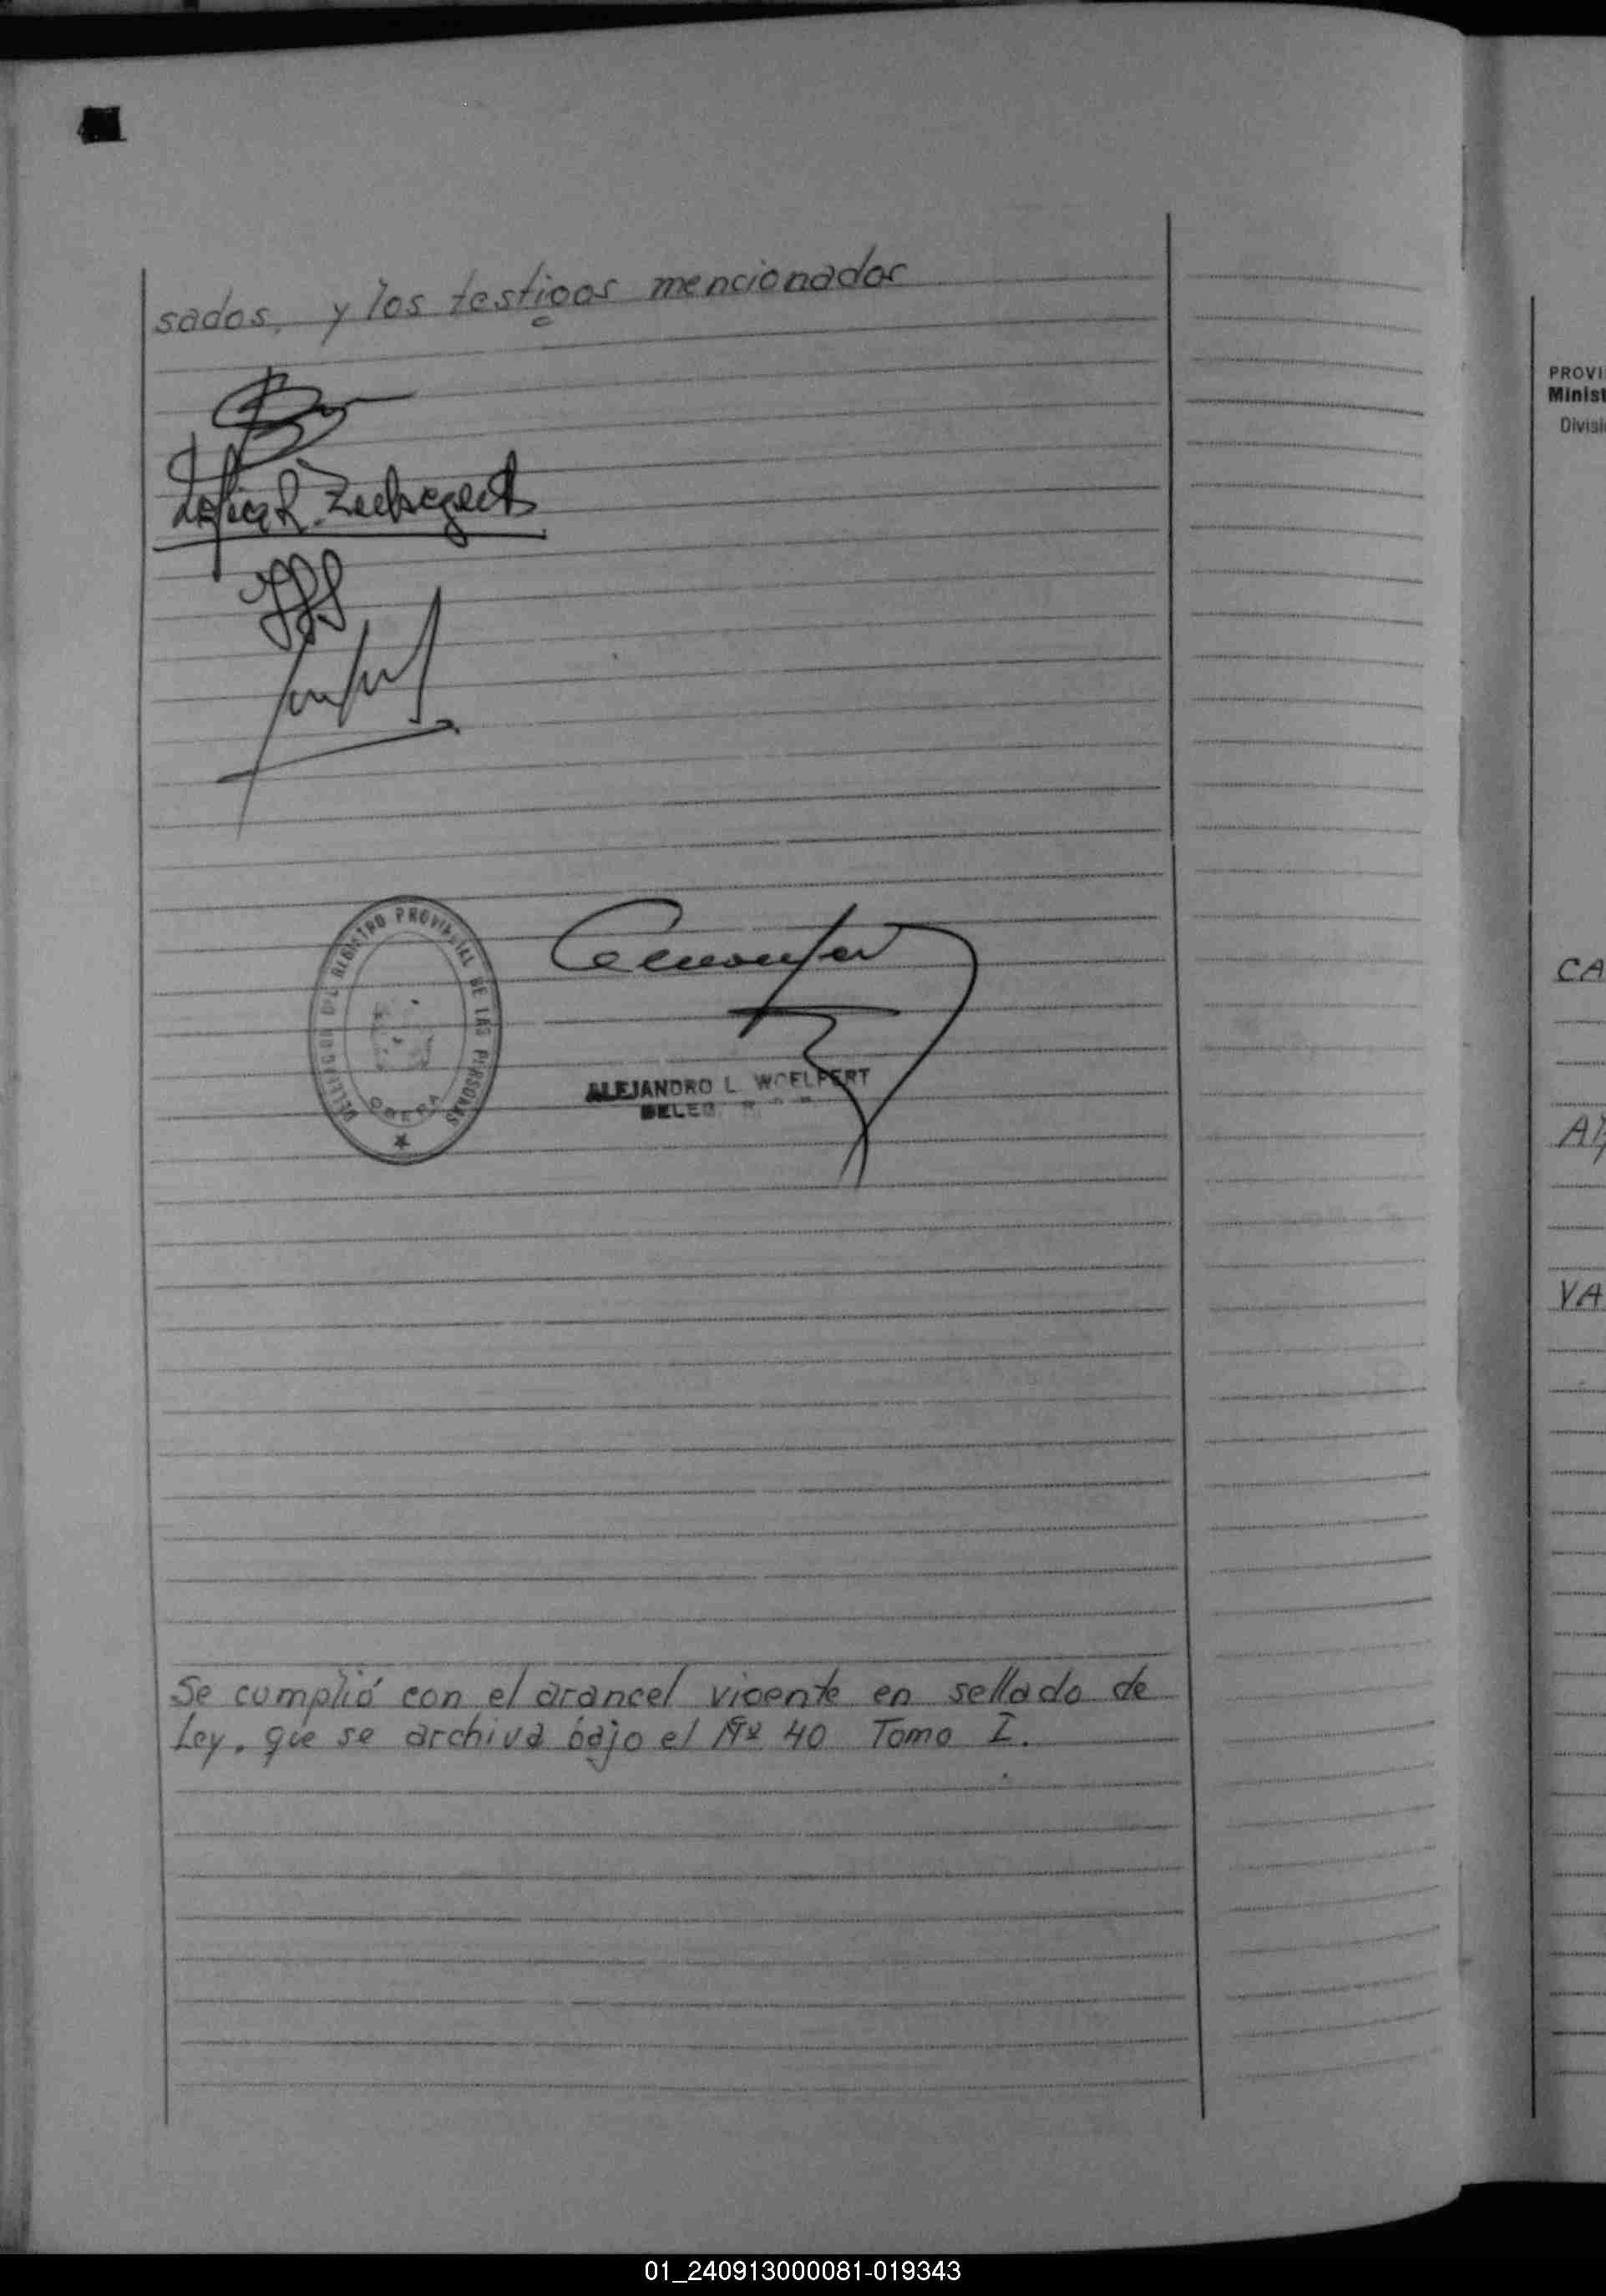 sados, y los testigos mencionados
DELEGACION DEL REGISTRO PROVINCIAL DE LAS PERSONAS
OBERA
ALEJANDRO L. WOELFERT
DELEG.
Se cumplió con el arancel vigente en sellado de
Ley, que se archiva bajo el Nº 40 Tomo I.
PROVI
Minist
Divisi
CA
VA
01_240913000081-019343